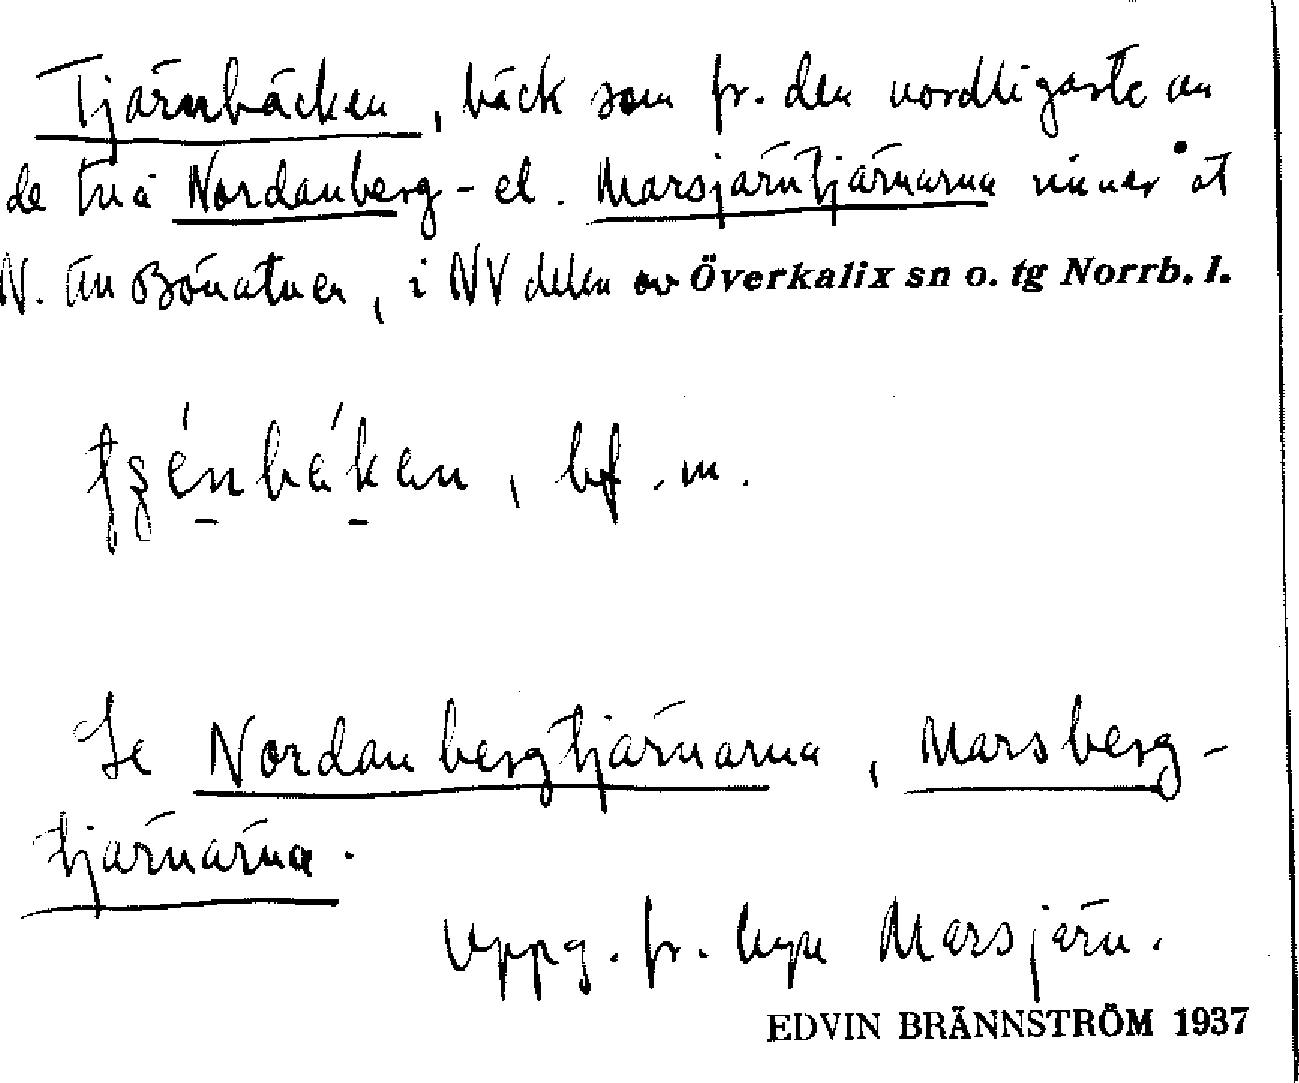 Tjärnbäcken, bäck som fr. den nordligaste av
de två Nordanberg- el. Marsjärntjärnarna rinner åt
N. i NV delen av Överkalix sn o. tg Norrb. l.
bf. m.
Se Nordanbergtjärnarna, Marsberg-
tjärnarna.
Uppg. fr. byn Marsjärn.
EDVIN BRÄNNSTRÖM 1937